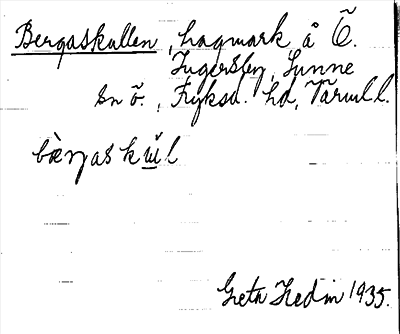 Bergaskullen, hagmark å Ö.
Ingersby, Sunne
sn ö., Fryksd. hd, Värml l.
bæŋaskŭl
Greta Hedin 1935.